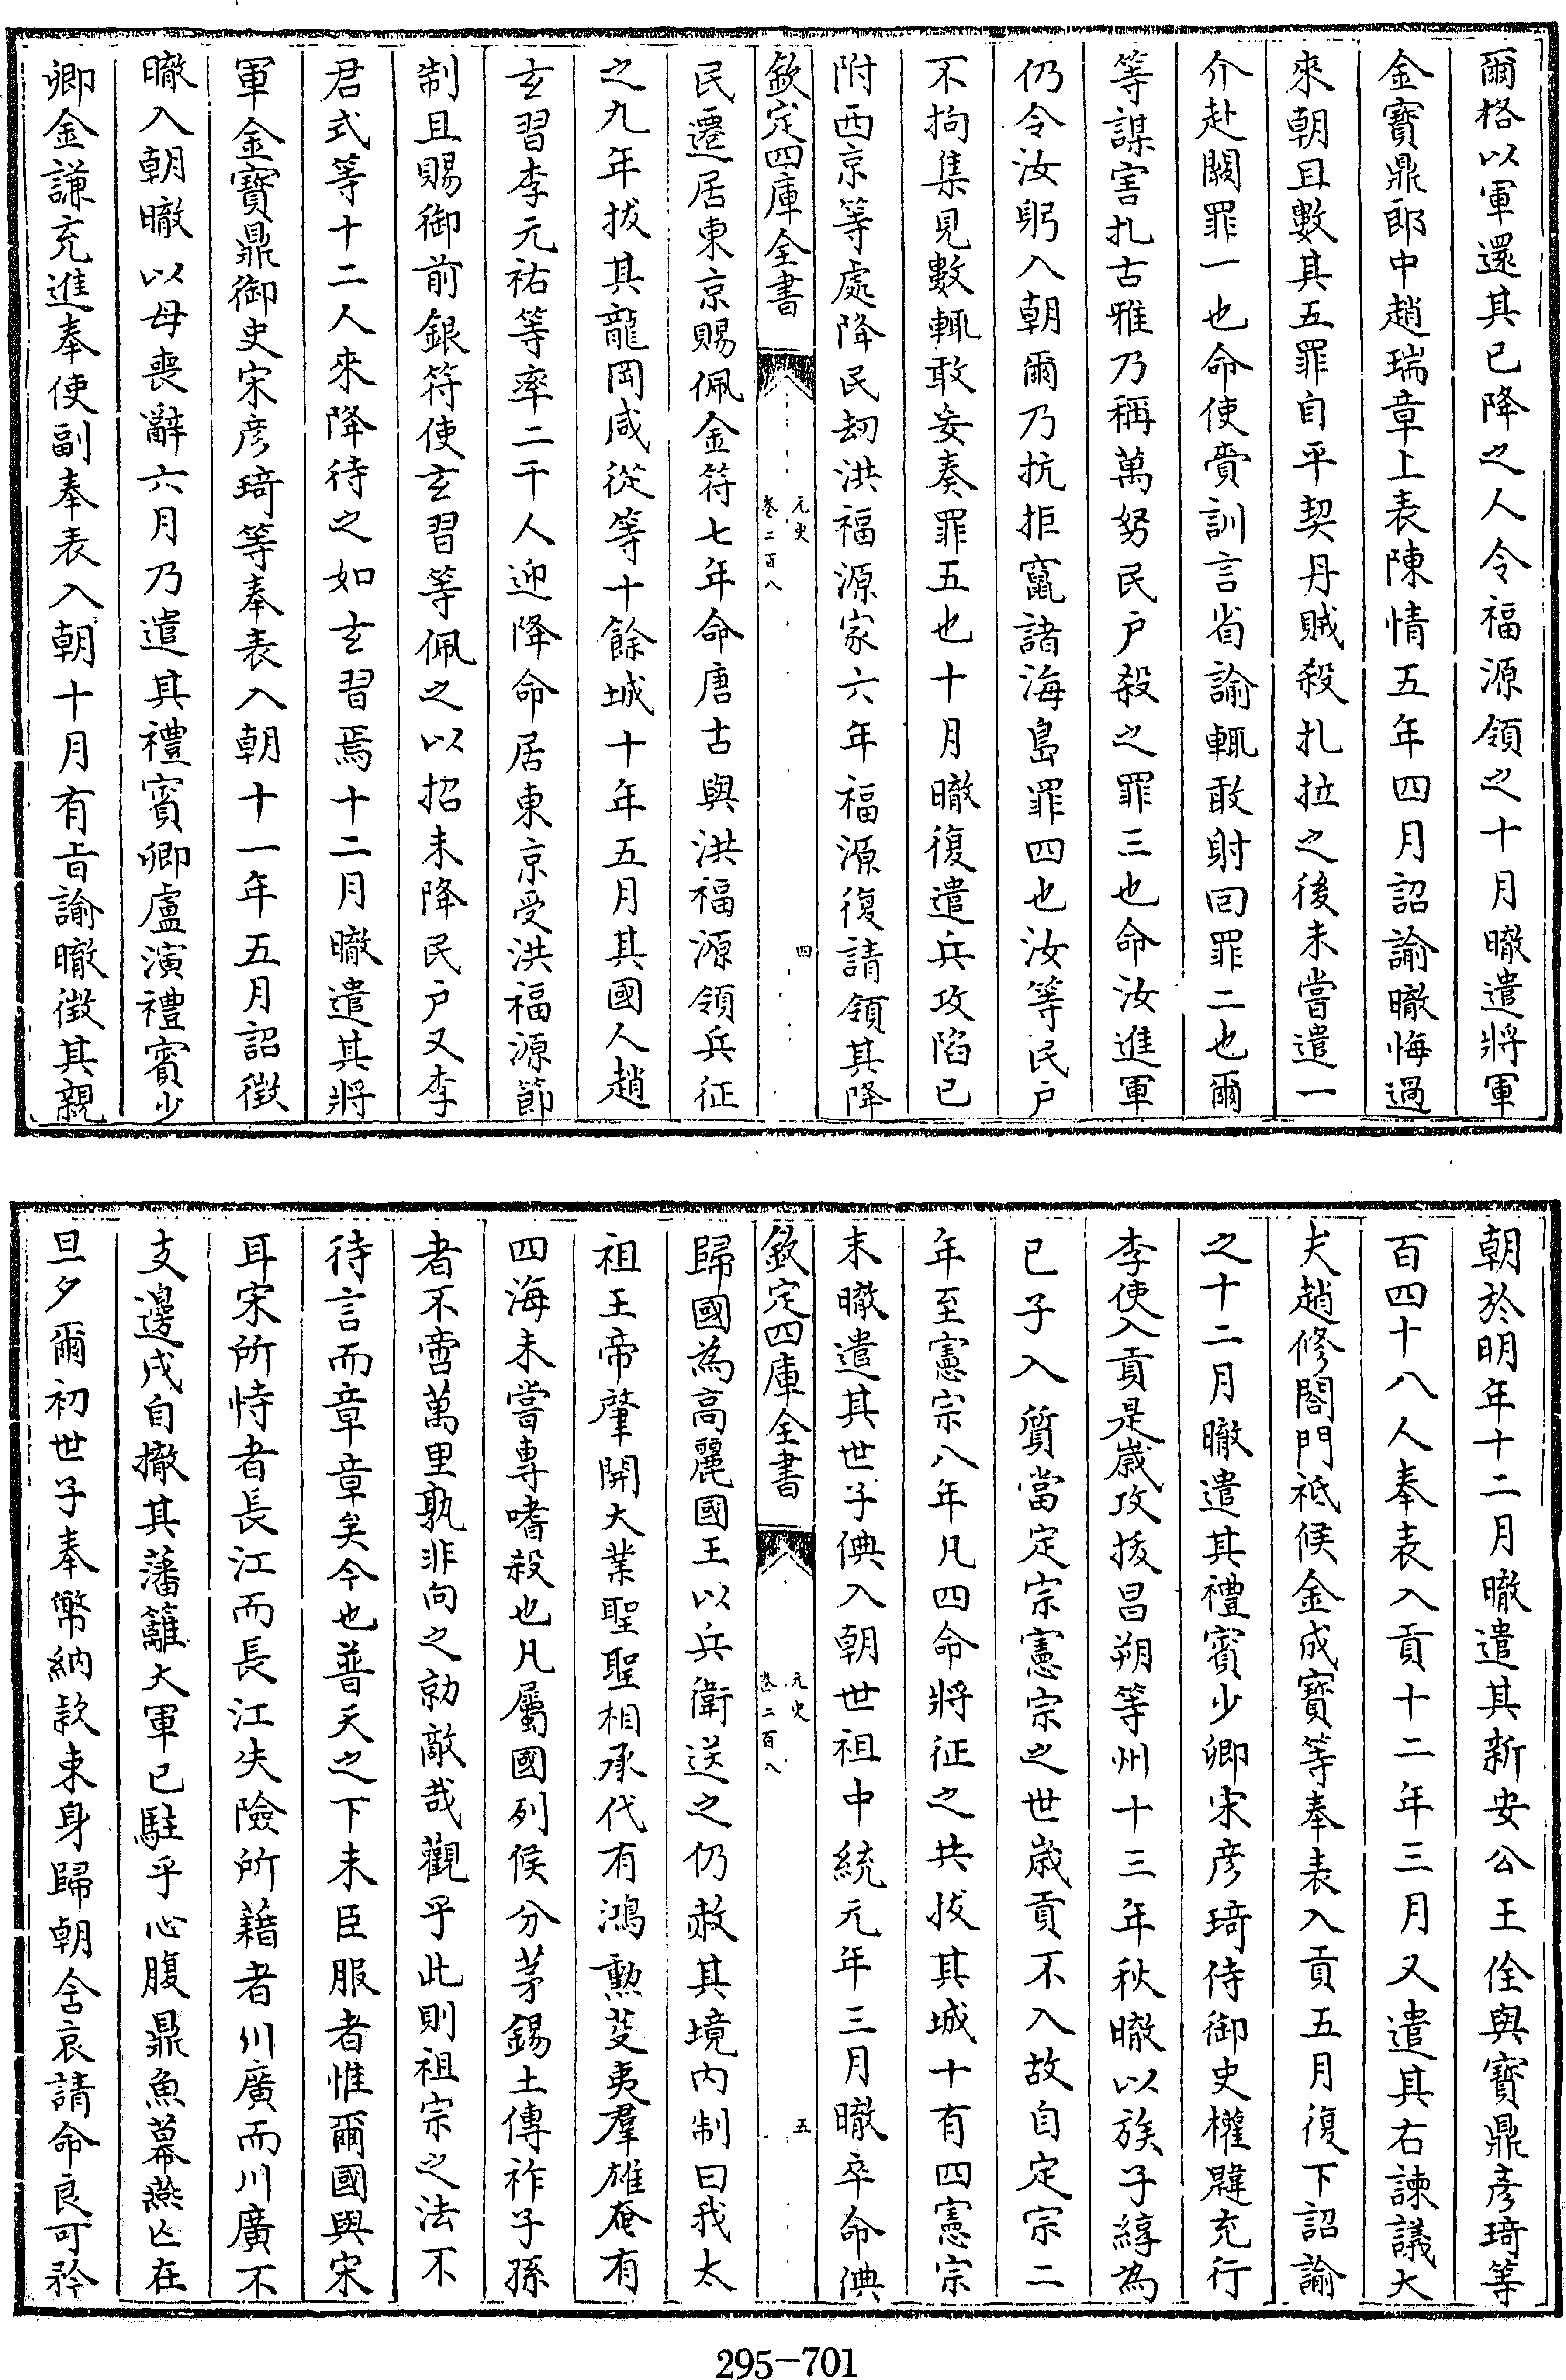 爾格以軍還其已降之人令福源領之十月㬚遣將軍
金寶鼎郎中趙瑞章上表陳情五年四月詔諭㬚悔過
來朝且數其五罪自平契丹賊殺扎拉之後未嘗遣一
介赴闕罪一也命使賫訓言省諭輒敢射回罪二也爾
等謀害扎古雅乃稱萬努民户殺之罪三也命汝進軍
仍令汝躬入朝爾乃抗拒竄諸海島罪四也汝等民户
不拘集見數輒敢妄奏罪五也十月㬚復遣兵攻陷已
附西京等處降民刼洪福源家六年福源復請領其降
欽定四庫全書
元史
卷二百八
四
民遷居東京賜佩金符七年命唐古與洪福源領兵征
之九年拔其龍岡咸從等十餘城十年五月其國人趙
玄習李元祐等率二千人迎降命居東京受洪福源節
制且賜御前銀符使玄習等佩之以招未降民户又李
君式等十二人來降待之如玄習焉十二月㬚遣其將
軍金寶鼎御史宋彦琦等奉表入朝十一年五月詔徴
㬚入朝㬚以母喪辭六月乃遣其禮賓卿盧演禮賓少
卿金謙充進奉使副奉表入朝十月有旨諭㬚徴其親
朝於明年十二月㬚遣其新安公王佺與寶鼎彦琦等
百四十八人奉表入貢十二年三月又遣其右諫議大
夫趙修閤門祗候金成寶等奉表入貢五月復下詔諭
之十二月㬚遣其禮賓少卿宋彦琦侍御史權韙充行
李使入貢是歳攻拔昌朔等州十三年秋㬚以族子綧為
已子入質當定宗憲宗之世歳貢不入故自定宗二
年至憲宗八年凡四命將征之共拔其城十有四憲宗
末㬚遣其世子倎入朝世祖中統元年三月㬚卒命倎
欽定四庫全書
元史
卷二百八
五
歸國為高麗國王以兵衛送之仍赦其境内制曰我太
祖王帝肇開大業聖聖相承代有鴻勲芟夷羣雄奄有
四海未嘗專嗜殺也凡屬國列侯分茅錫土傳祚子孫
者不啻萬里孰非向之勍敵哉觀乎此則祖宗之法不
待言而章章矣今也普天之下未臣服者惟爾國與宋
耳宋所恃者長江而長江失險所藉者川廣而川廣不
支邊戍自撤其藩籬大軍已駐乎心腹鼎魚幕燕亡在
旦夕爾初世子奉幣納款束身歸朝含哀請命良可矜
295-701